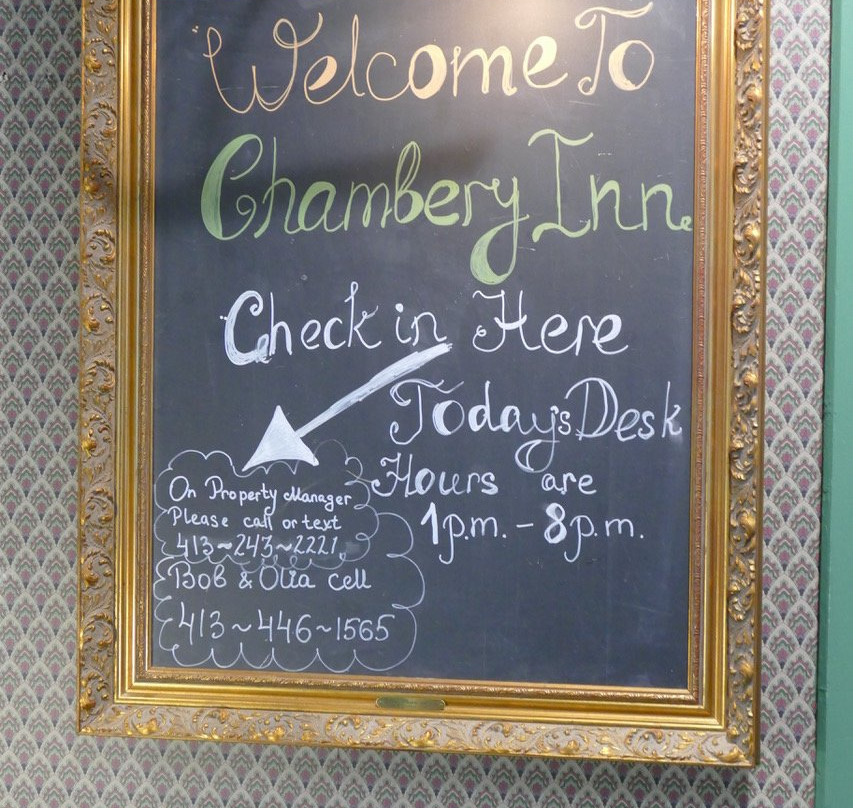 Welcome To
Chambery Inn
Check in Here
Today's Desk
Hours are
1p.m. - 8p.m.
On Property Manager
Please call or text
413~243~2221
Bob & Olia cell
413~446~1565